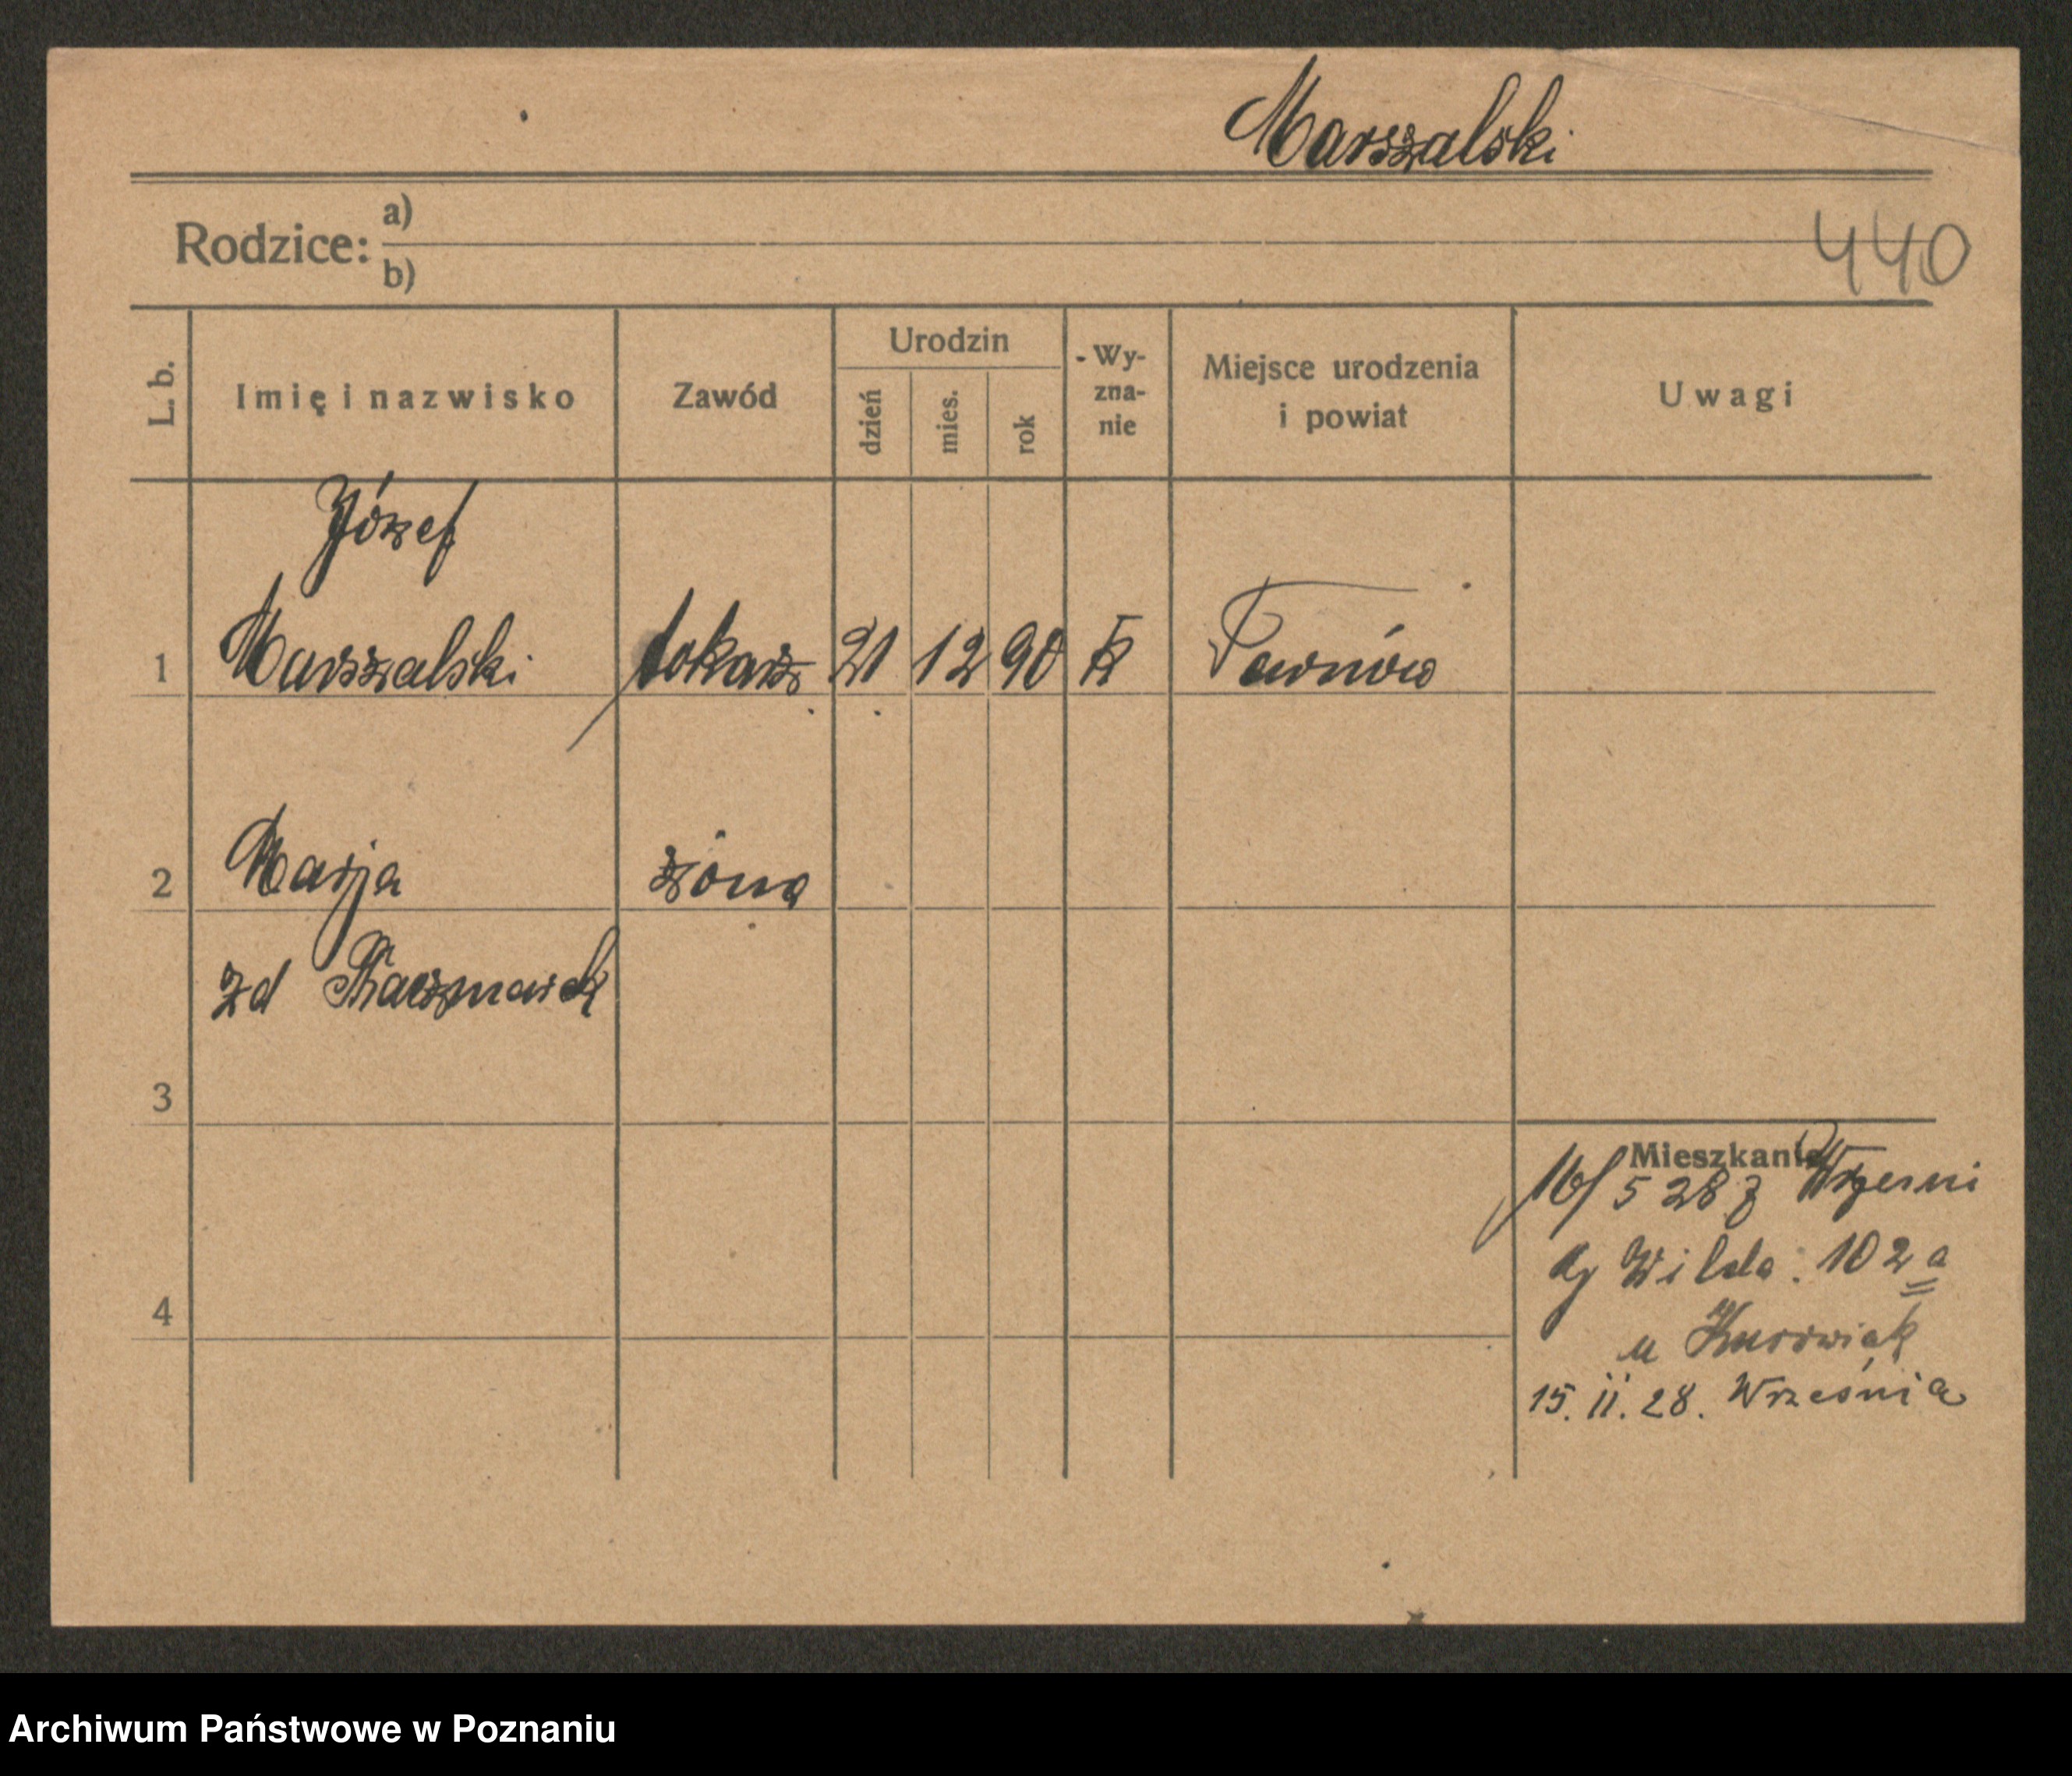 Marszalski
Rodzice: a)
b)
440
L. b. Imię i nazwisko Zawód Urodzin dzień mies. rok Wy-zna-nie Miejsce urodzenia i powiat Uwagi
Józef
1 Marszalski tokarz 21 12 90 k Tarnów
2 Marja żona
zd Kaczmarek
3
Mieszkanie
16/5 28 z Wrześni
Wilda. 102a
4
u
15. 11. 28. Września
Archiwum Państwowe w Poznaniu